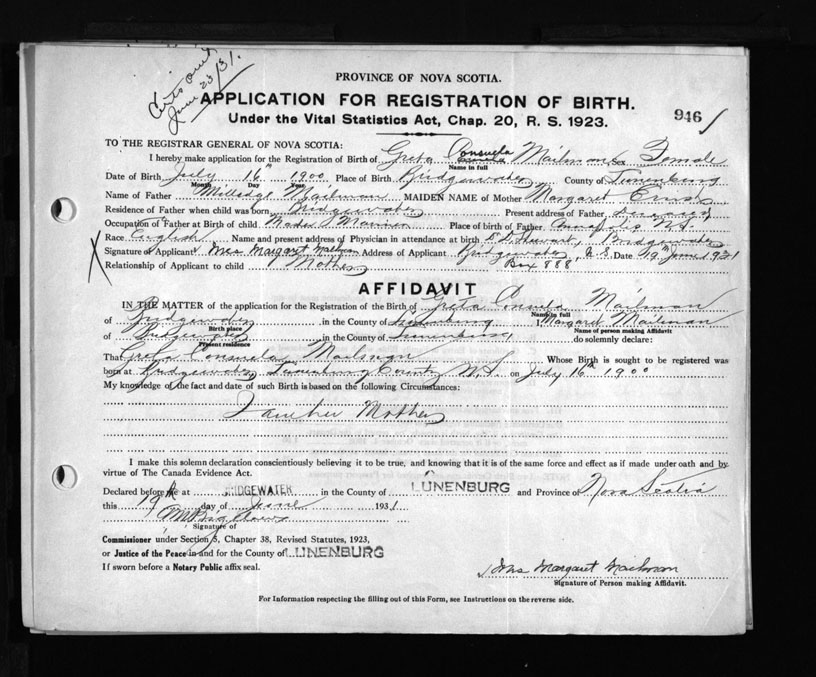 Certs sent
June 23/31.
PROVINCE OF NOVA SCOTIA.
APPLICATION FOR REGISTRATION OF BIRTH.
946
Under the Vital Statistics Act, Chap. 20, R. S. 1923.
TO THE REGISTRAR GENERAL OF NOVA SCOTIA:
I hereby make application for the Registration of Birth of Greta Consuela Mailman Sex Female
Name in full
Date of Birth July 16th 1900 Place of Birth Bridgewater County of Lunenburg
Month Day Year
Name of Father Mailman MAIDEN NAME of Mother Margaret
Residence of Father when child was born Bridgewater Present address of Father
Occupation of Father at Birth of child Master Mariner Place of birth of Father Annapolis N.S.
Race English Name and present address of Physician in attendance at birth Stewart, Bridgewater
Signature of Applicant Mrs Margaret Mailman Address of Applicant Bridgewater, N.S. Date 19th June 1931
Relationship of Applicant to child Mother Box 888
AFFIDAVIT
IN THE MATTER of the application for the Registration of the Birth of Greta Consuela Mailman
Name in full
of Bridgewater in the County of Lunenburg I, Margaret Mailman
Birth place Name of person making Affidavit
of Bridgewater in the County of Lunenburg do solemnly declare:
Present residence
That Greta Consuela Mailman Whose Birth is sought to be registered was
born at Bridgewater, Lunenburg County N.S. on July 16th 1900
My knowledge of the fact and date of such Birth is based on the following Circumstances:
I am her Mother
I make this solemn declaration conscientiously believing it to be true, and knowing that it is of the same force and effect as if made under oath and by
virtue of The Canada Evidence Act.
Declared before me at BRIDGEWATER in the County of LUNENBURG and Province of Nova Scotia
this 19th day of June 1931
Signature of
Commissioner under Section 5, Chapter 38, Revised Statutes, 1923,
or Justice of the Peace in and for the County of LUNENBURG
If sworn before a Notary Public affix seal.
Mrs Margaret Mailman
Signature of Person making Affidavit.
For Information respecting the filling out of this Form, see Instructions on the reverse side.